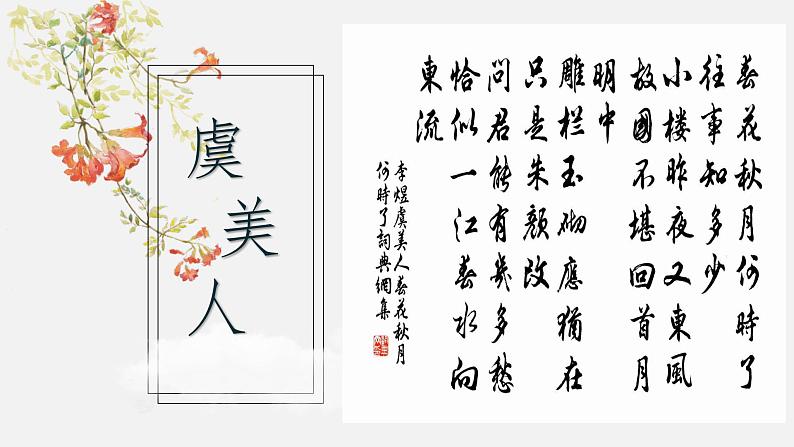 虞美人
春花秋月何時了
往事知多少
小楼昨夜又東風
故國不堪回首月
明中
雕栏玉砌應猶在
只是朱颜改
问君能有幾多愁
恰似一江春水向
東流
李煜虞美人春花秋月
何時了詞典網集